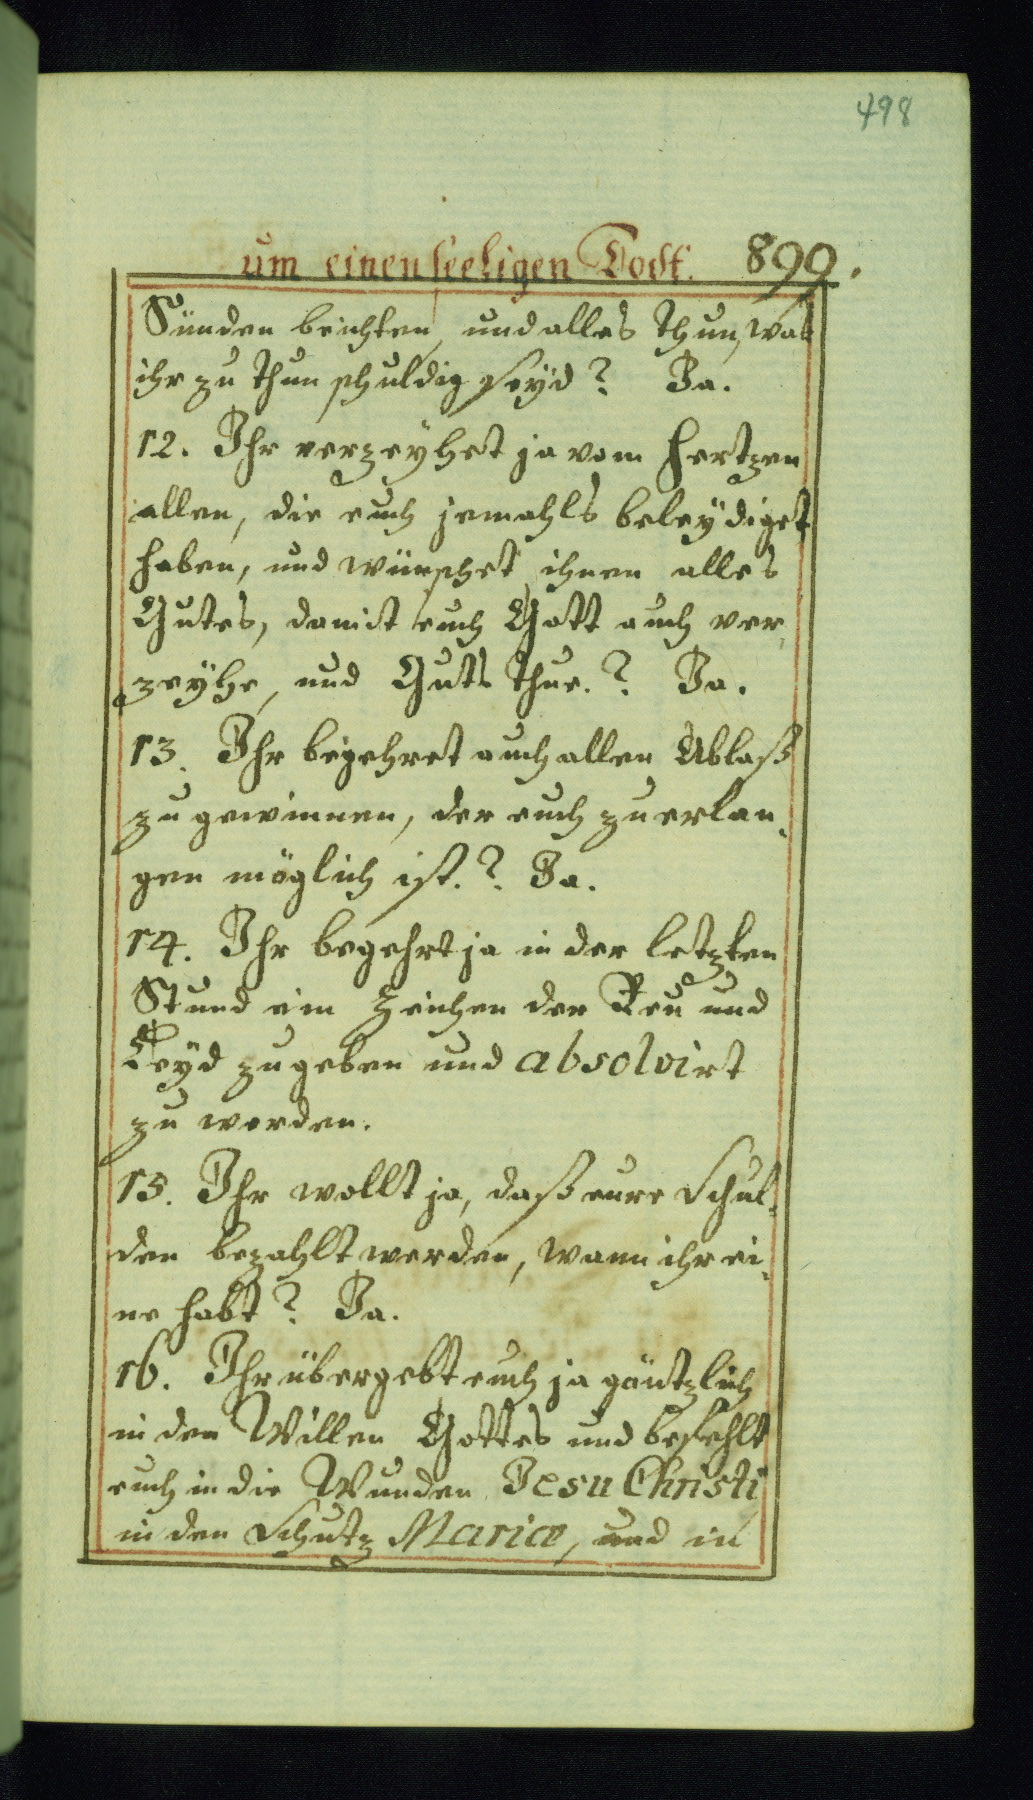 498
um einen seeligen Todt. 899.
Sünden beichten, und alles thun, was
ihr zu thun schuldig seÿd? Ja.
12. Ihr verzeÿhet ja vom Hertzen
allen, die euch jemahls beleÿdiget
haben, und wünschet ihnen alles
Gutes, damit euch Gott auch ver,
zeÿhe, und Guts thue.? Ja.
13. Ihr begehret auch allen Ablaß
zu gewinnen, der euch zu erlan,
gen möglich ist.? Ja.
14. Ihr begehrt ja in der letzten
Stund ein Zeichen der Reu und
Leÿd zu geben und absolvirt
zu werden.
15. Ihr wollt ja, daß eure Schul,
den bezahlt werden, wann ihr ei,
ne habt? Ja.
16. Ihr übergebt euch ja gäntzlich
in den Willen Gottes und befehlt
euch in die Wunden Jesu Christi
in den Schutz Mariæ, und in